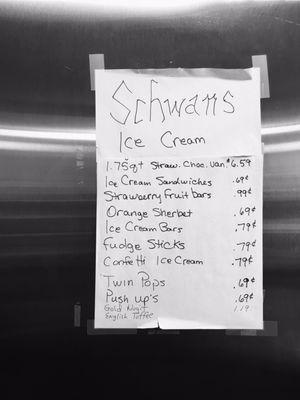 Schwans
Ice Cream
1.75qt Straw. Choc. Van. $6.59
Ice Cream Sandwiches .69¢
Strawberry Fruit bars .99¢
Orange Sherbet .69¢
Ice Cream Bars .79¢
fudge Sticks .79¢
Confetti Ice Cream .79¢
Twin Pops .69¢
Push up's .69¢
Gold Nugit 1.19
English Toffee